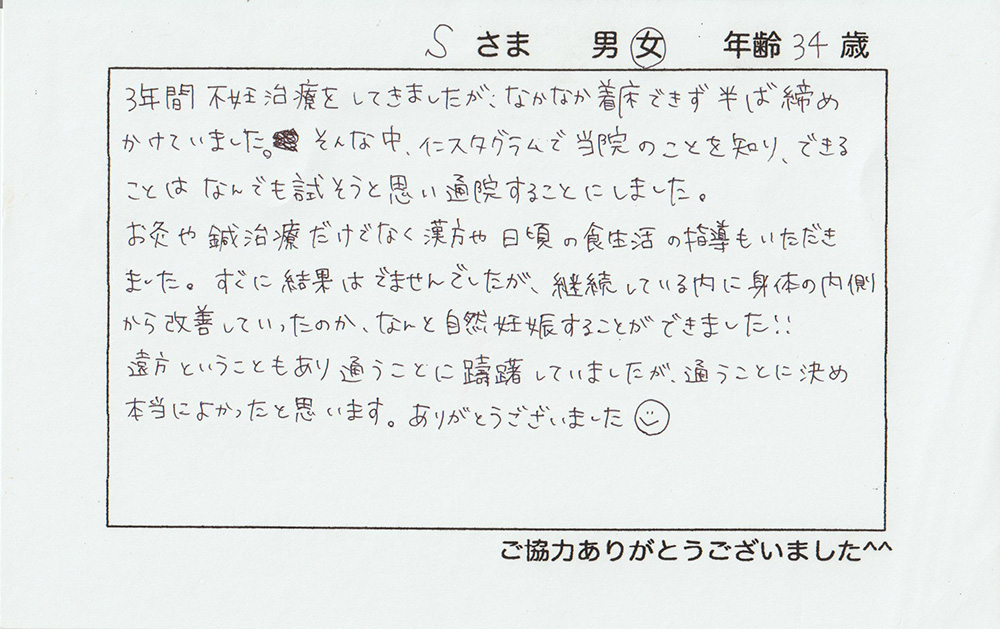 S さま 男 女 年齢 34 歳
3年間 不妊治療をしてきましたが、なかなか着床できず半ば締め
かけていました。そんな中、インスタグラムで当院のことを知り、できる
ことはなんでも試そうと思い通院することにしました。
お灸や鍼治療だけでなく漢方や日頃の食生活の指導もいただき
ました。すぐに結果はでませんでしたが、継続している内に身体の内側
から改善していったのか、なんと自然妊娠することができました!!
遠方ということもあり通うことに躊躇していましたが、通うことに決め
本当によかったと思います。ありがとうございました
ご協力ありがとうございました^^